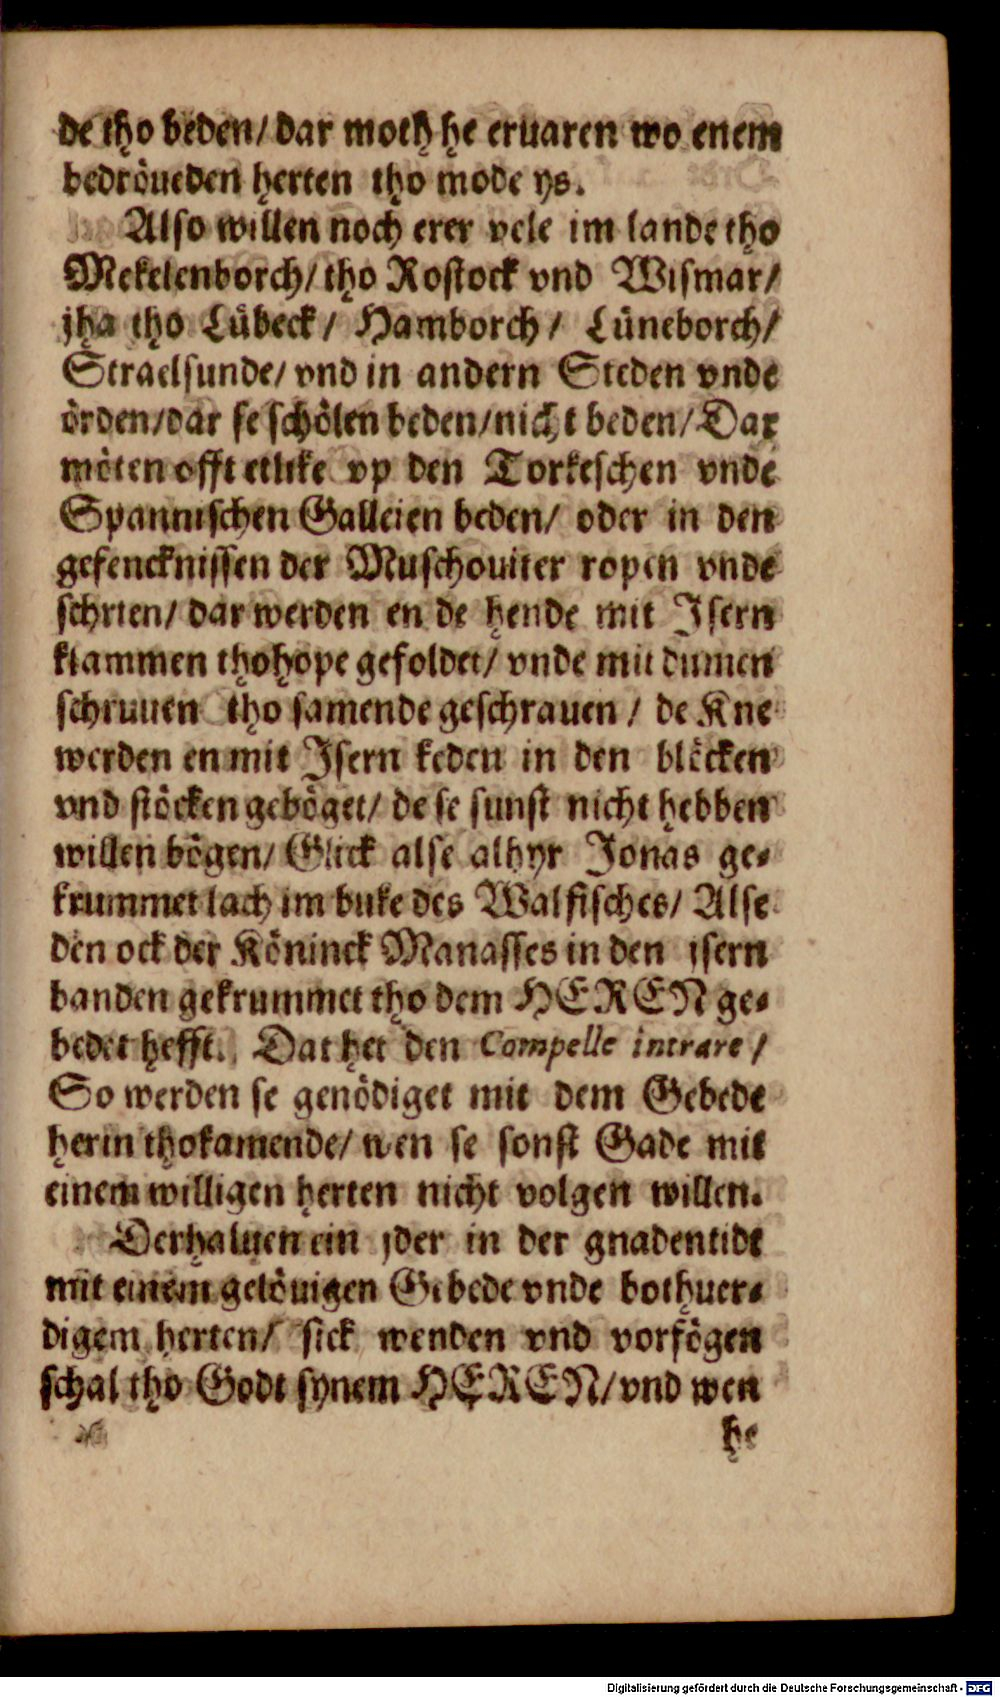 de tho beden/ dar moth he eruaren wo enem
bedröueden herten tho mode ys.
Also willen noch erer vele im lande tho
Mekelenborch/ tho Rostock vnd Wismar/
jha tho Lübeck/ Hamborch/ Lüneborch/
Straelsunde/ vnd in andern Steden vnde
örden/dar se schölen beden/nicht beden/ Dar
möten offt etlike vp den Torkeschen vnde
Spannischen Galleien beden/ oder in den
gefencknissen der Muschouiter ropen vnde
schrien/ dar werden en de hende mit Isern
klammen thohope gefoldet/ vnde mit dumen
schruuen tho samende geschrauen/ de Kne
werden en mit Isern keden in den blöcken
vnd stöcken geböget/ de se sunst nicht hebben
willen bögen/ Glick alse alhyr Jonas ge⸗
krummet lach im buke des Walfisches/ Alse
den ock der Köninck Manasses in den jsern
banden gekrummet tho dem HEREN ge⸗
bedet hefft. Dat het den Compelle intrare/
So werden se genödiget mit dem Gebede
herin thokamende/ wen se sonst Gade mit
einem willigen herten nicht volgen willen.
Derhaluen ein jder in der gnadentidt
mit einem gelöuigen Gebede vnde bothuer⸗
digem herten/ sick wenden vnd vorfögen
schal tho Godt synem HEREN/ vnd wen
he
Digitalisierung gefördert durch die Deutsche Forschungsgemeinschaft - DFG